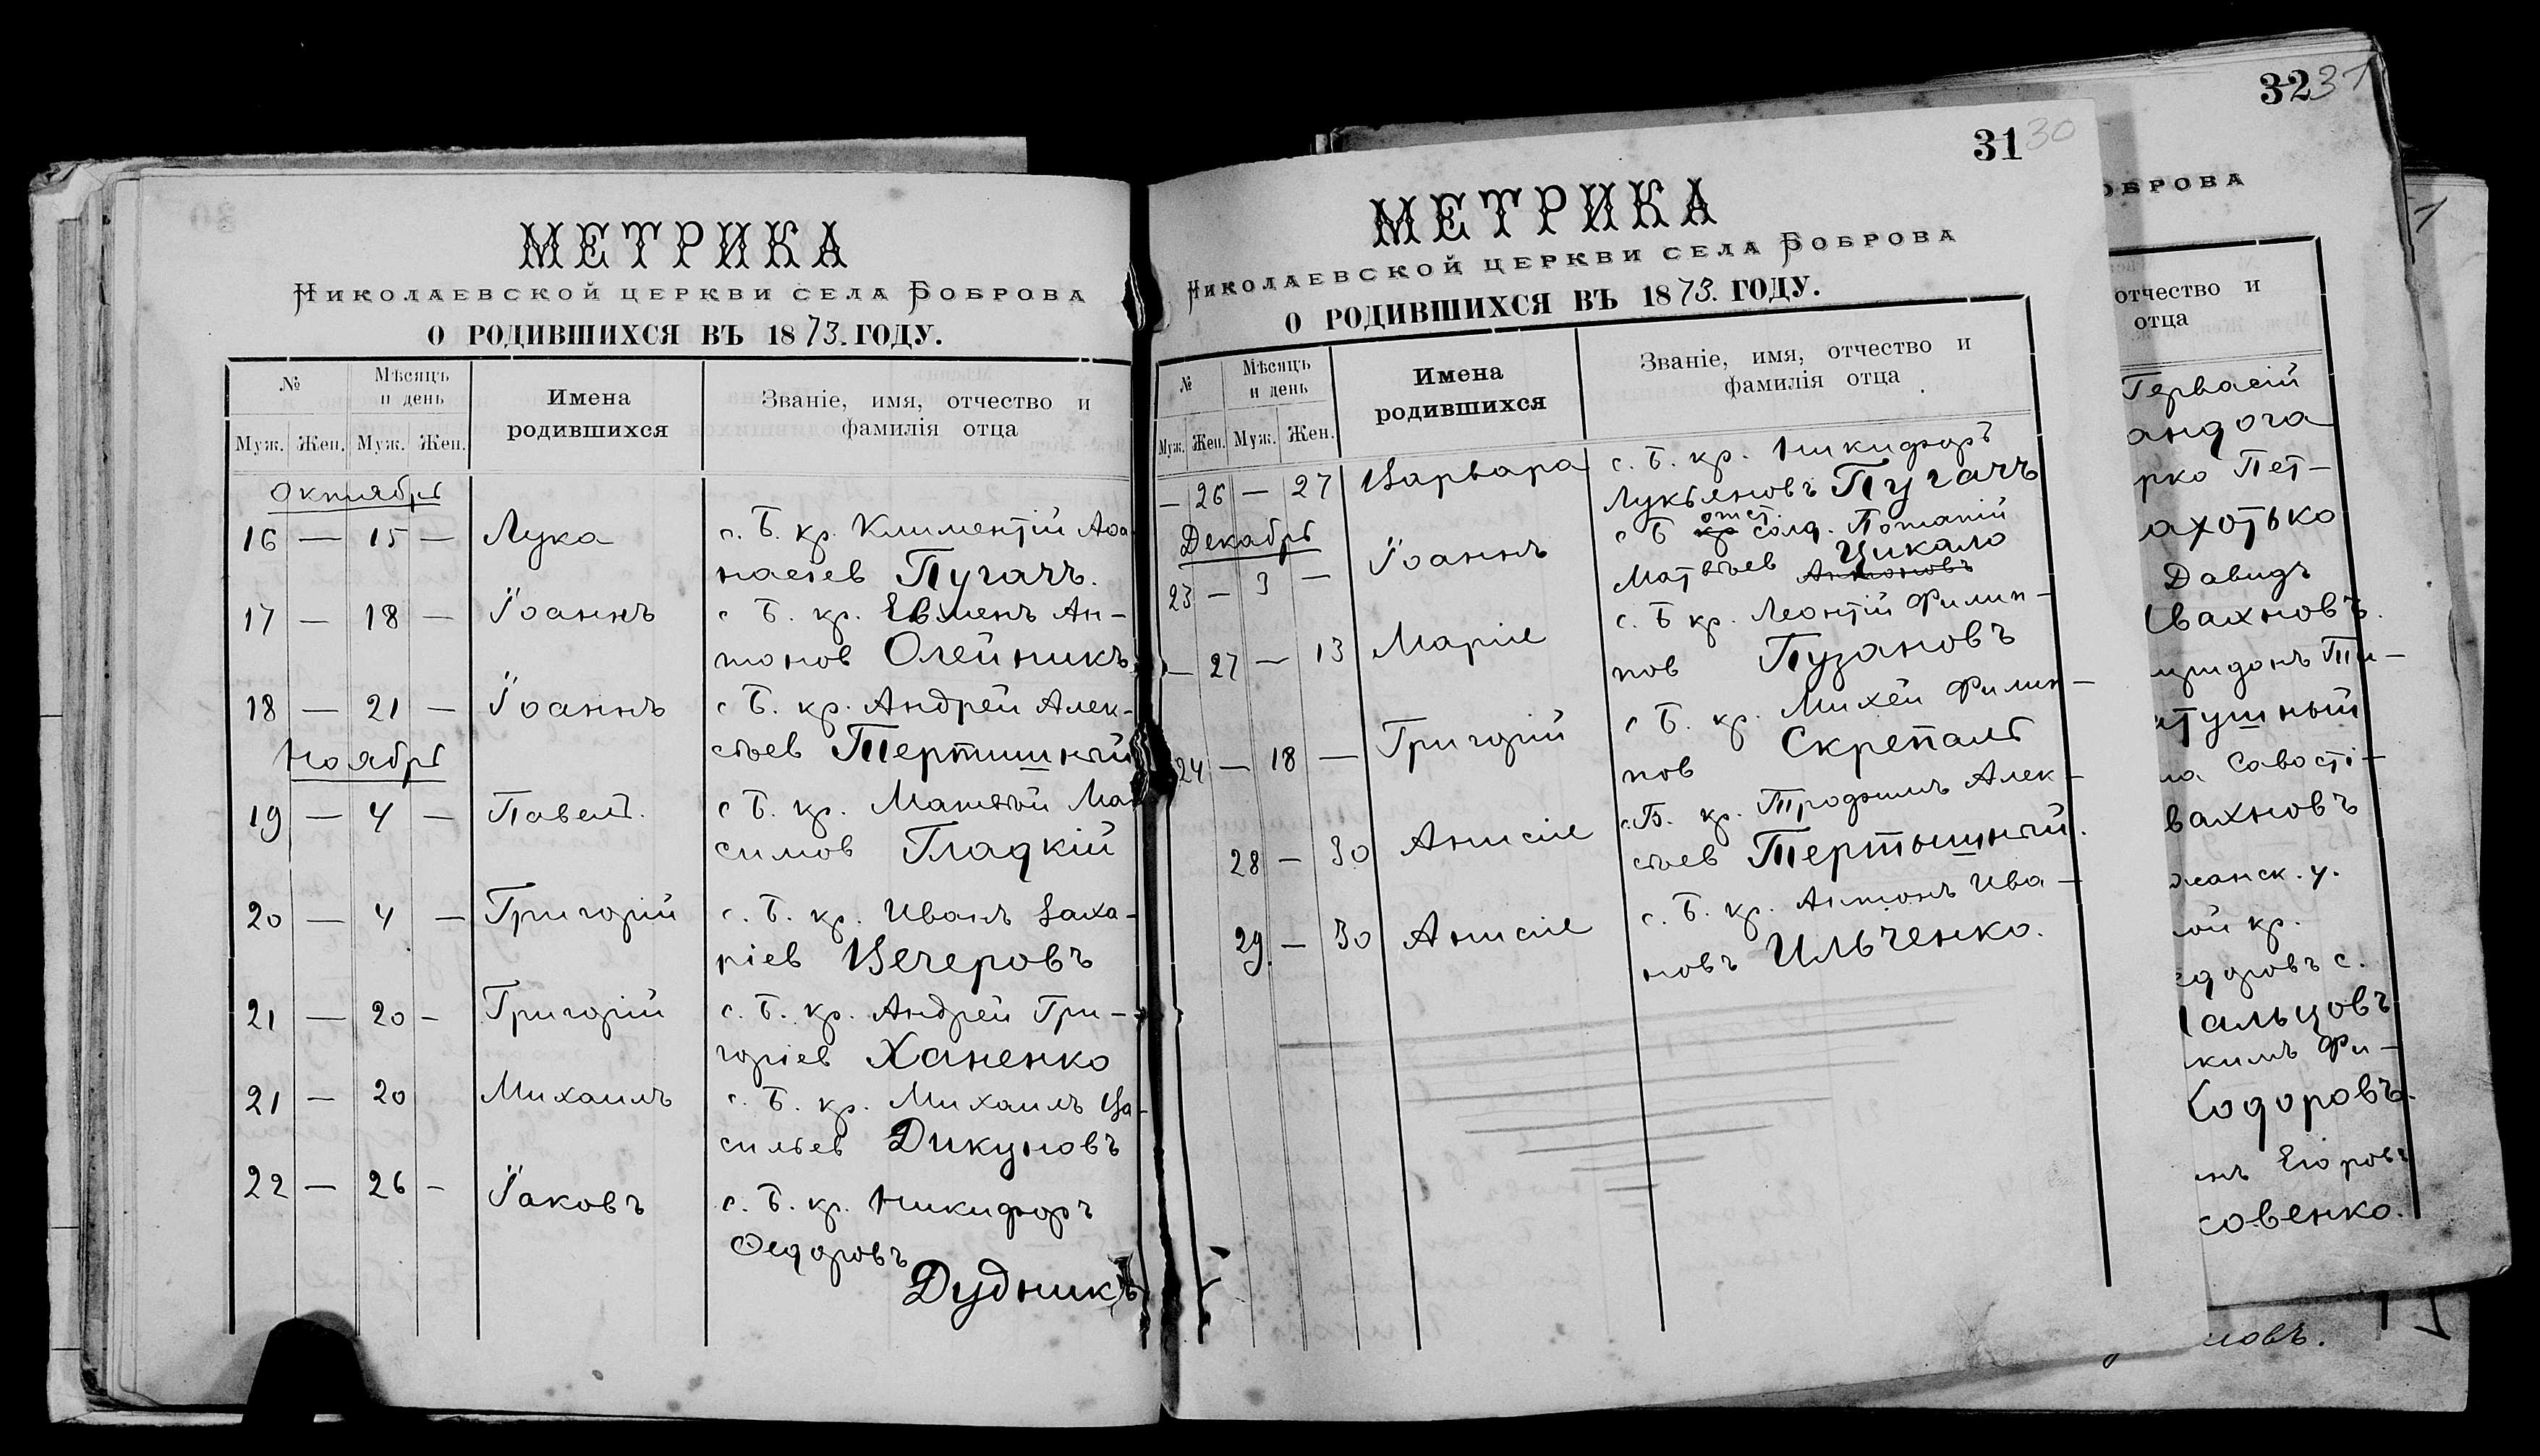 МЕТРИКА
Николаевской церкви села Боброва
О РОДИВШИХСЯ ВЪ 1873. ГОДУ.
№ Мѣсяцъ и день Имена родившихся Званіе, имя, отчество и фамилія отца
Муж. Жен. Муж. Жен.
Октябрь
16 — 15 — Лука с. Б. кр. Климентій Аѳа
насіев Пугачъ.
17 — 18 — Іоаннъ с Б. кр. Евменъ Ан-
тонов Олейникъ
18 — 21 — Іоаннъ с Б. кр. Андрей Алек-
сѣев Тертишный
Ноябрь
19 — 4 — Павелъ. с Б. кр. Матвѣй Мак
симов Гладкій
20 — 4 — Григорій с. Б. кр. Иванъ Заха-
ріев Вечеровъ
21 — 20 - Григорій с. Б. кр. Андрей Гри-
горіев Ханенко
21 — 20 Михаилъ с. Б. кр. Михаилъ Ва-
сильев Дикуновъ
22 — 26 - Іаковъ с. Б. кр. Никифоръ
Ѳедоровъ
Дудникъ
31 30
МЕТРИКА
Николаевской церкви села Боброва
О РОДИВШИХСЯ ВЪ 1873. ГОДУ.
№ Мѣсяцъ и день Имена родившихся Званіе, имя, отчество и фамилія отца
Муж. Жен. Муж. Жен.
— 26 — 27 Варвара с. Б. кр. Никифоръ
Лукьяновъ Пугачъ
Декабрь
23 — 3 — Іоаннъ с Б кр отст. солд. Потапій
Матвѣев Цикало
Антоновъ
— 27 — 13 Марія с. Б кр. Леонтій Филип-
пов Пузановъ
24 — 18 — Григорій с Б. кр. Михей Филип-
пов Скрепаль
28 — 30 Анисія с.Б. кр. Трофимъ Алек-
сѣев Тертышный.
29. — 30 Анисія с. Б. кр. Антонъ Ива-
новъ Ильченко.
32 31
оброва
отчество и
отца
Гервасій
андога
рко Пет-
ахотько
Давидъ
вахновъ.
тушный
Савасті-
вахновъ
жанск. у.
ой кр.
альцовъ
кимъ Фи-
одоровъ.
нъ Егоровъ
совенко.
1